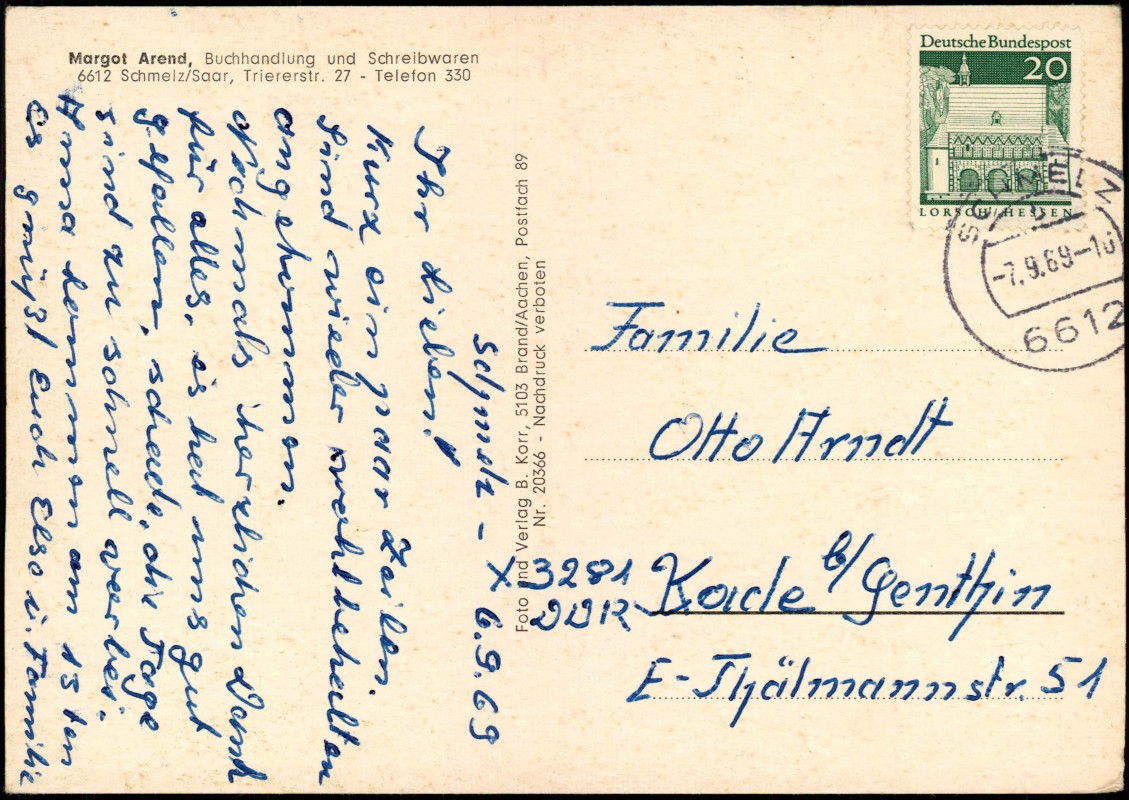 Margot Arend, Buchhandlung und Schreibwaren
6612 Schmelz/Saar, Triererstr. 27 - Telefon 330
Schmelz - 6.9.69
Ihr Lieben!
Kurz ein paar Zeilen
sind wieder wohlbehalten
angekommen.
Nochmals herzlichen Dank
für alles, es hat uns gut
gefallen, schade, die Tage
sind zu schnell vorbei.
kommen am 15ten
Es grüßt Euch Else u. Familie
Foto und Verlag B. Korr, 5103 Brand/Aachen, Postfach 89
Nr. 20366 - Nachdruck verboten
Deutsche Bundespost
20
LORSCH/HESSEN
SCHMELZ
-7.9.69-10
6612
Familie
Otto Arndt
X 3281 Kade b/ Genthin
DDR
E-Thälmannstr. 51